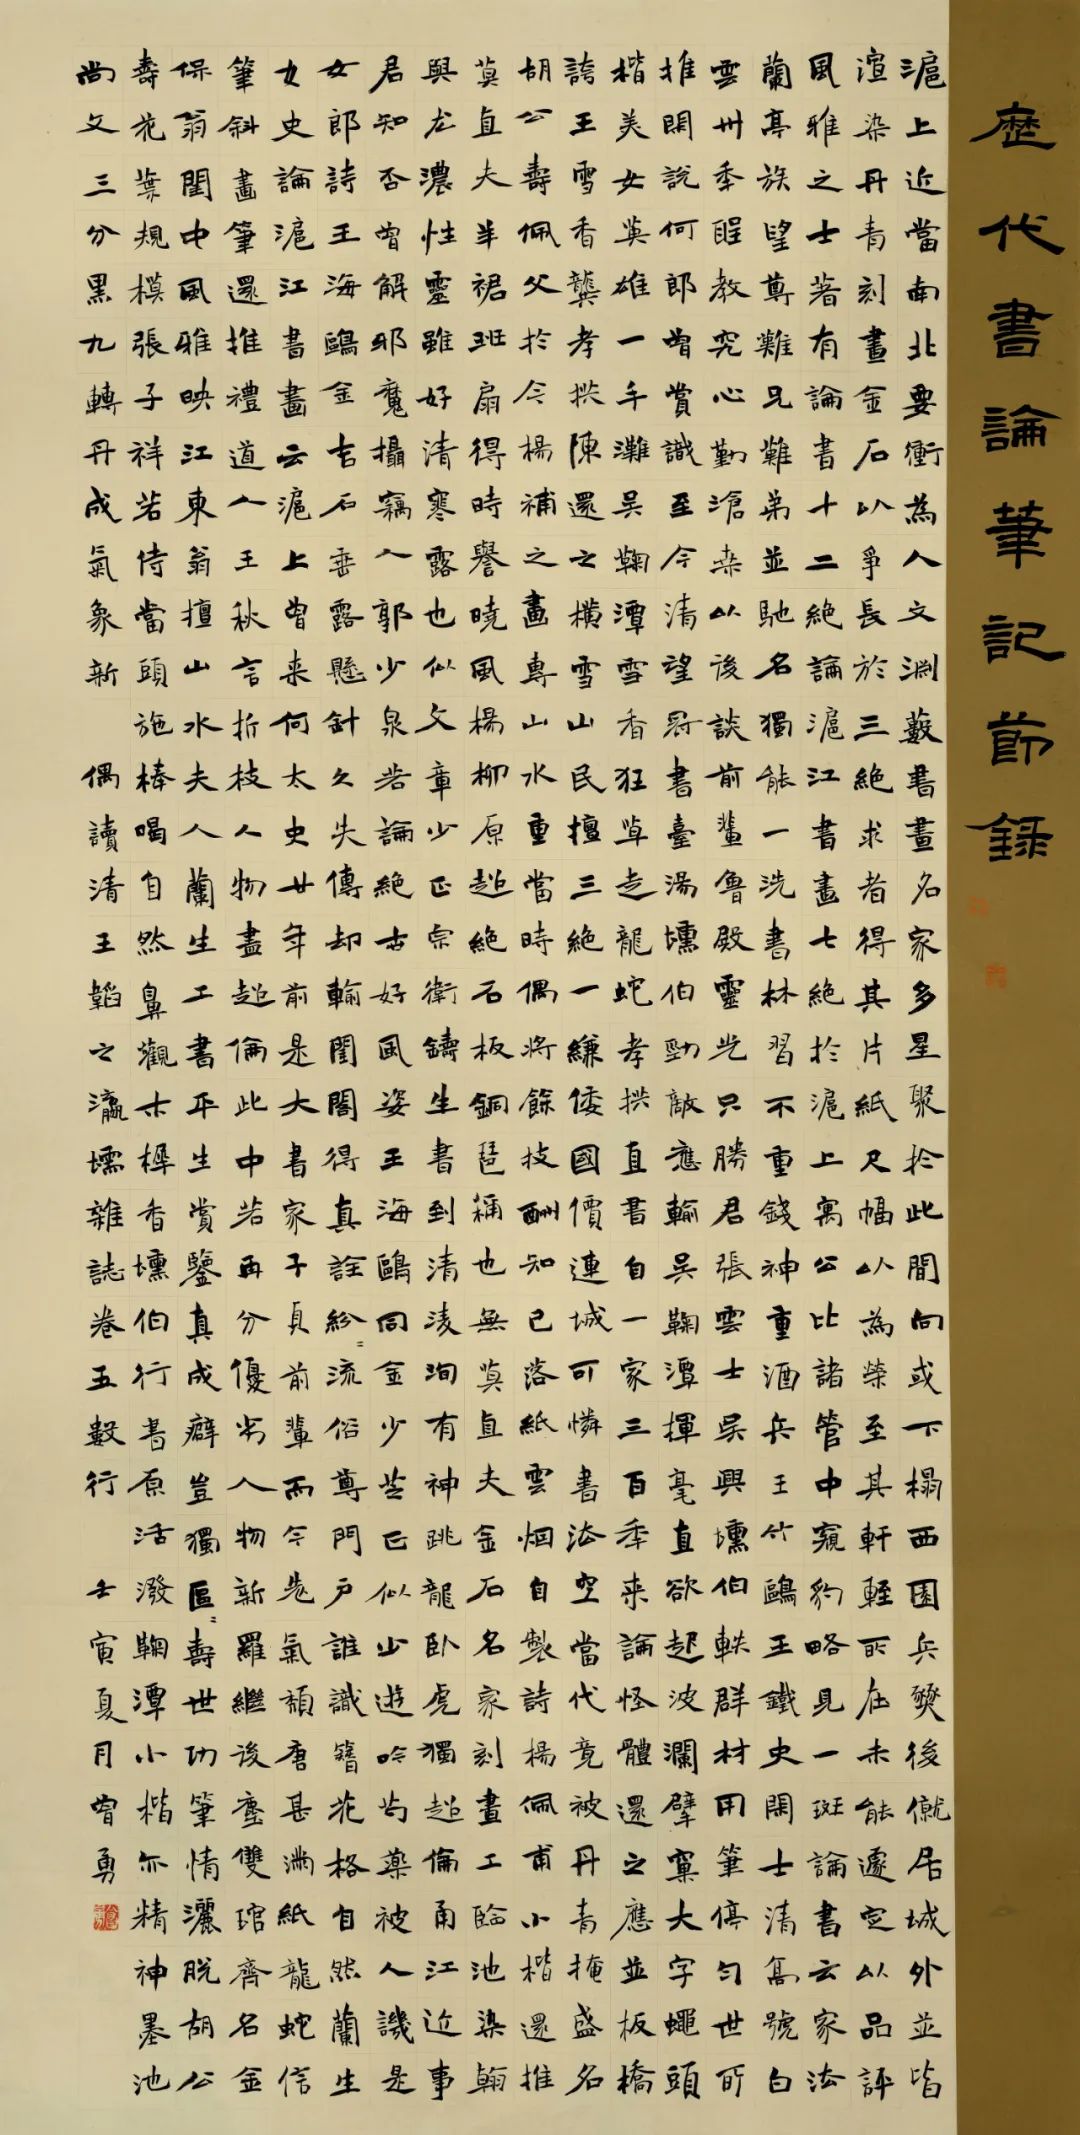 歷代書論筆記節録
滬上近當南北要衝為人文淵藪書畫名家多星聚於此間向或下榻西園兵燹後僦居城外並皆
渲染丹青刻畫金石以爭長於三絕求者得其片紙尺幅以為榮至其軒輊所在未能遽定以品評
風雅之士著有論書十二絕論滬江書畫七絕於滬上寓公比諸管中窺豹略見一斑論書云家法
蘭亭族望尊難兄難弟並馳名獨能一洗書林習不重錢神重酒兵王竹鷗王鐵史閑士清高號白
雲卅季睚教究心勤滄桑以後談前輩魯殿靈光只勝君張雲士吳興壎伯軼群材用筆停勻世所
推閑說何郎曾賞識至今清望冠書臺湯壎伯勁敵應輸吳鞠潭揮毫直欲起波瀾擘窠大字蠅頭
楷美女英雄一手灘吳鞠潭雪香狂草走龍蛇孝拱直書自一家三百季來論怪體還之應並板橋
誇王雪香龔孝拱陳還之橫雪山民擅三絕一縑倭國價連城可憐書法空當代竟被丹青掩盛名
胡公壽佩父於今楊補之畫專山水重當時偶將餘技酬知己落紙雲烟自製詩楊佩甫小楷還推
莫直夫羊裙班扇得時譽曉風楊柳原超絕石板銅琶稱也無莫直夫金石名家刻畫工臨池染翰
與尤濃性靈雖好清寒露也似文章少正宗衛鑄生書到清淩洵有神跳龍臥虎獨超倫甬江近事
君知否曾解邪魔攝竊人郭少泉若論絕古好風姿王海鷗同金少芝已似少遊吟芍藥被人譏是
女郎詩王海鷗金吉石垂露懸針久失傳却輸閨閣得真詮紛〻流俗尊門戶誰識簪花格自然蘭生
女史論滬江書畫云滬上曾来何太史廿年前是大書家子貞前輩而今老氣頹唐甚滿紙龍蛇信
筆斜畫筆還推禮道人王秋言折枝人物盡超倫此中若再分優劣人物新羅繼後塵雙琯齊名金
保翁閨中風雅映江東翁擅山水夫人蘭生工書平生賞鑒真成癖豈獨區〻壽世功筆情灑脫胡公
壽花葉規模張子祥若侍當頭施棒喝自然鼻觀十樨香壎伯行書原活潑鞠潭小楷亦精神墨池
尚欠三分黑九轉丹成氣象新 偶讀清王韜之瀛壖雜誌卷五數行 壬寅夏月曾勇